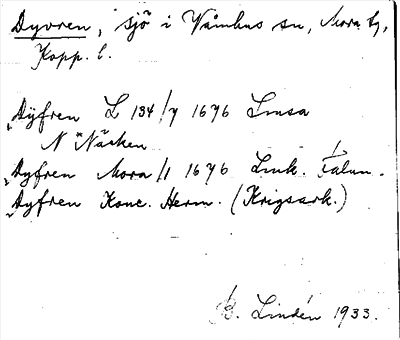 Dyvren, sjö i Våmhus sn, Mora tg,
Kopp. l.
„Dÿfren L 134/7 1676 Lmsa
N Näcken
„Dyfren Mora/1 1676 Lmk. Falun.
„Dyfren Konc. Herm. (Krigsark.)
B. Lindén 1933.